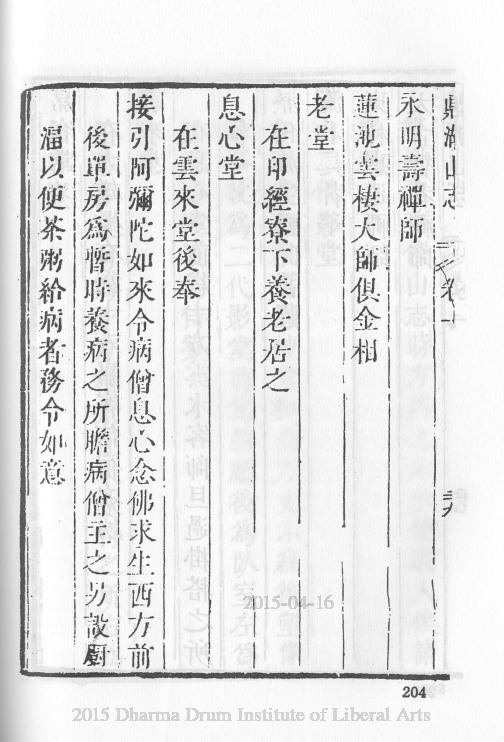 鼎湖山志 卷一
永明壽禪師
蓮池雲棲大師俱金相
老堂
在印經寮下養老居之
息心堂
在雲來堂後奉
接引阿彌陀如來令病僧息心念佛求生西方前
後單房爲暫時養病之所瞻病僧主之另設厨
湢以便茶粥給病者務令如意
204
2015-04-16
2015 Dharma Drum Institute of Liberal Arts